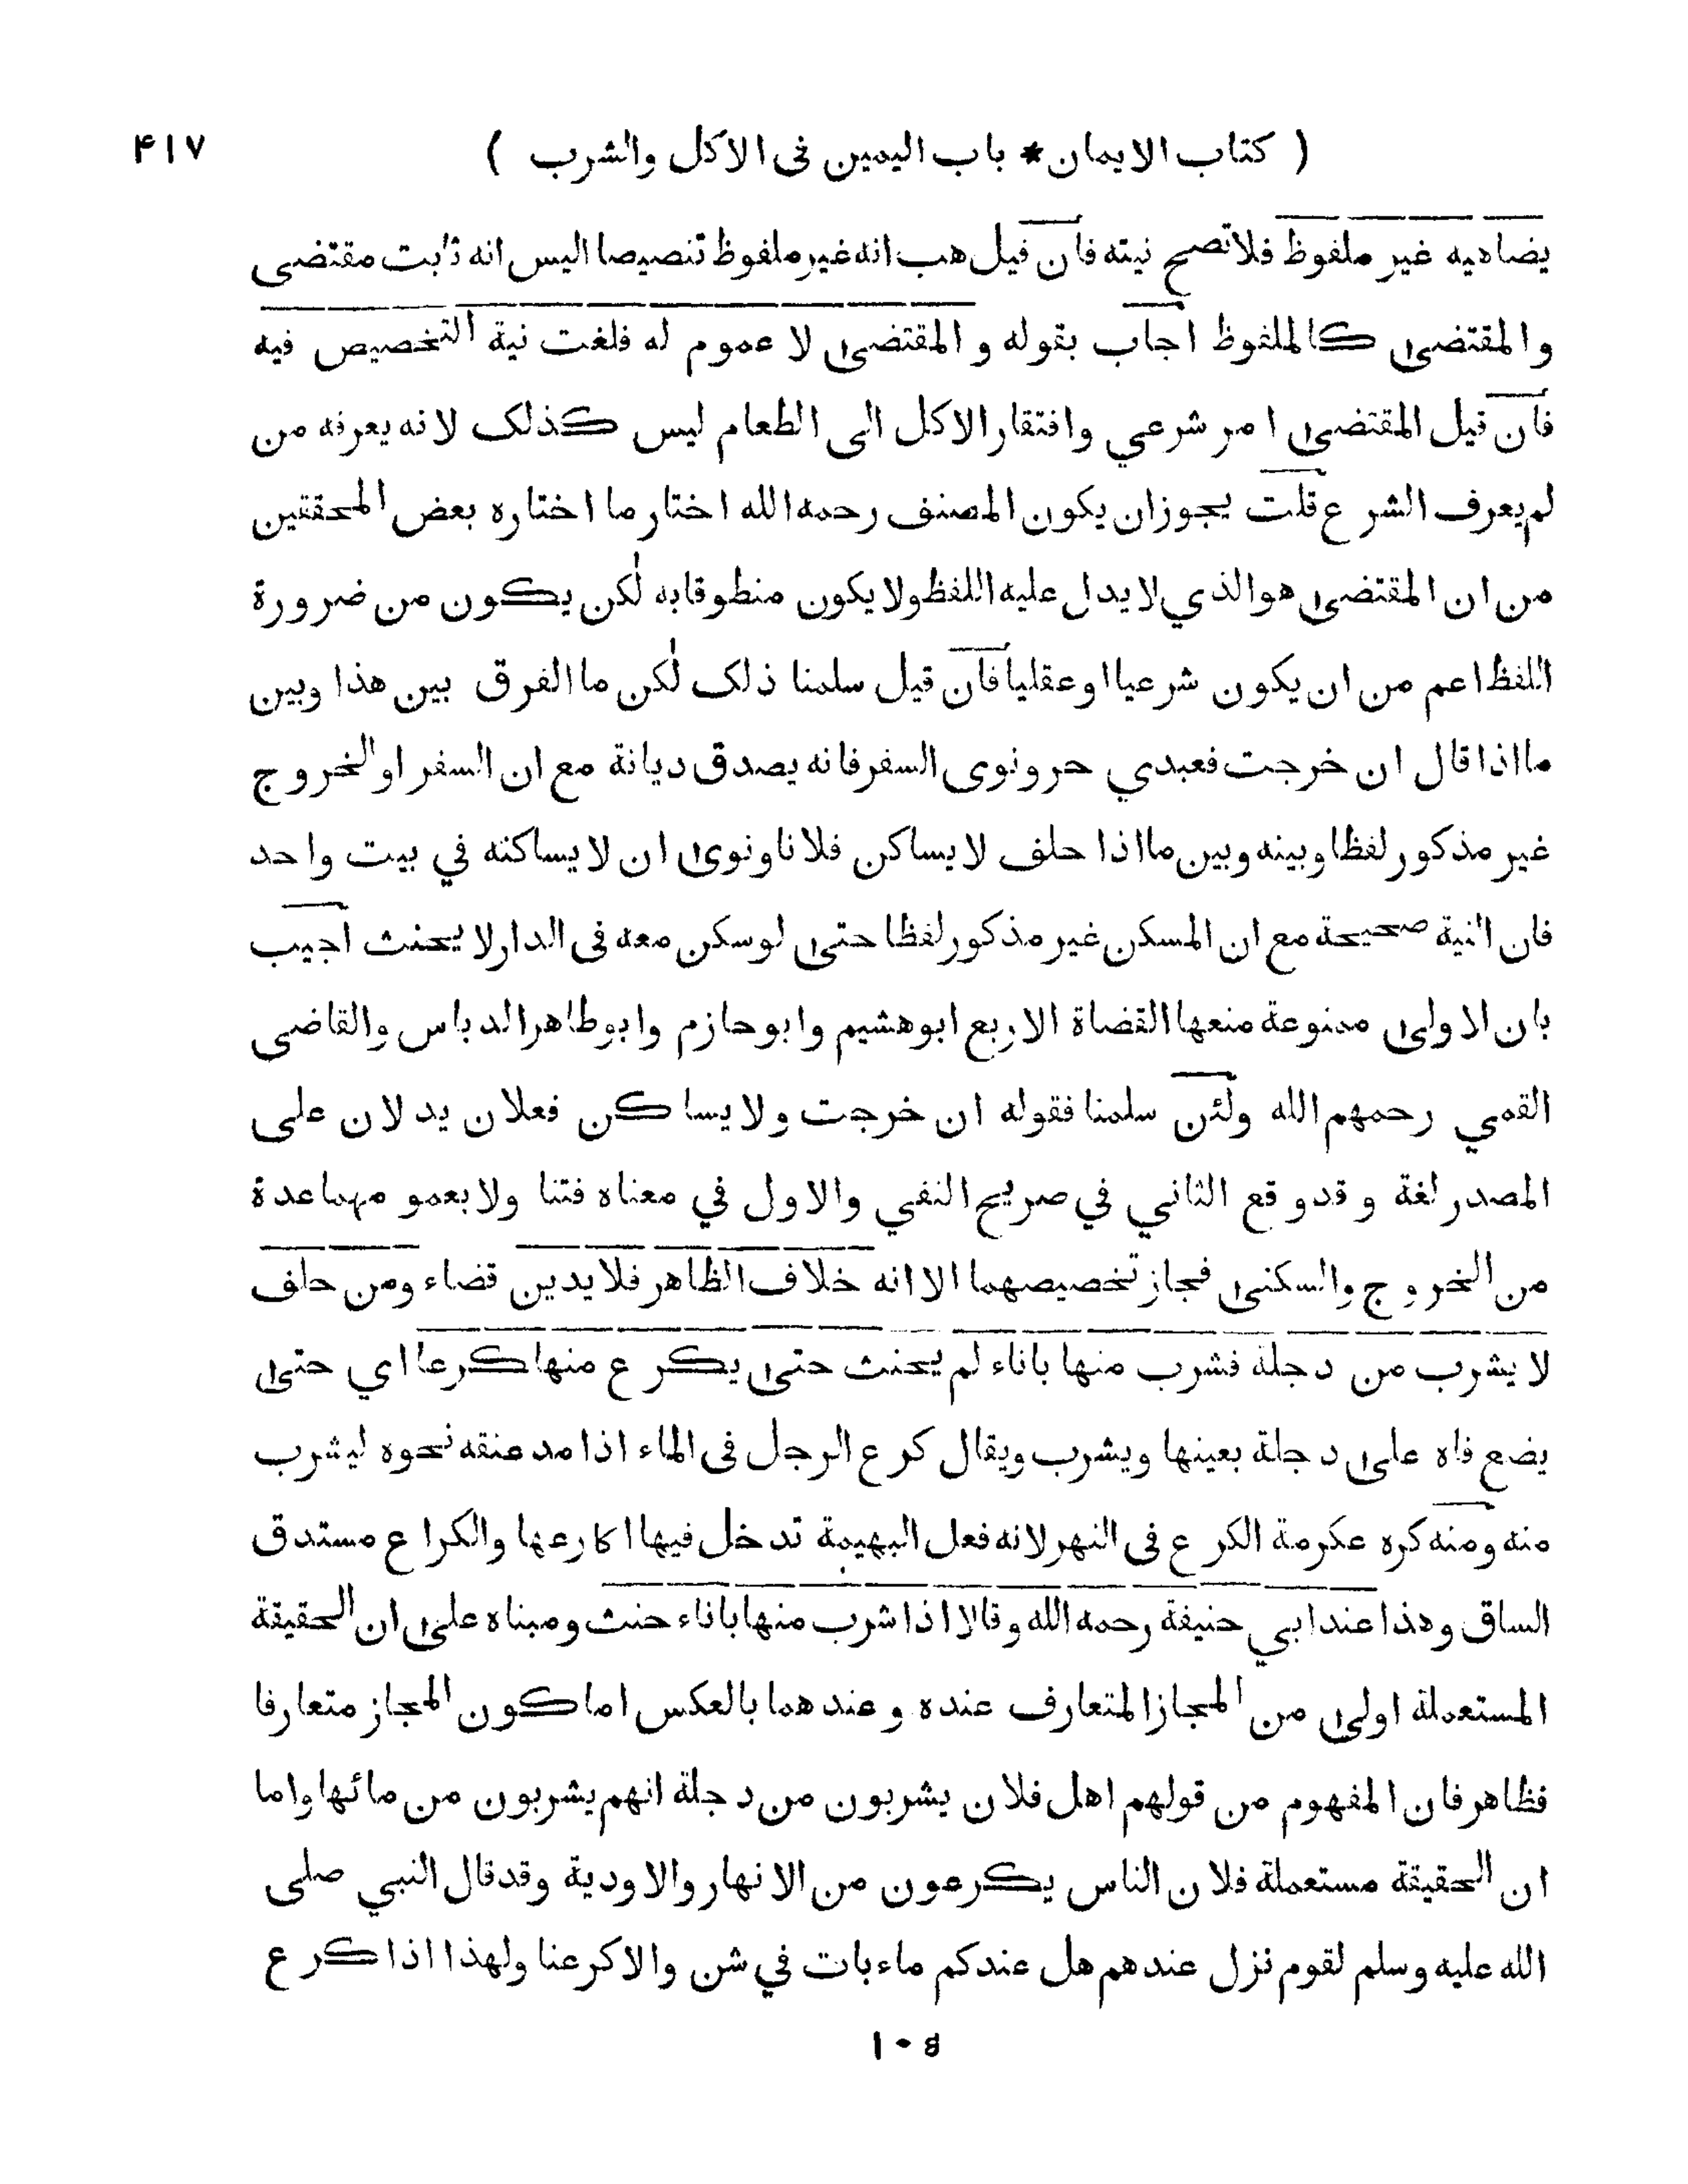 ( كتاب الايمان * باب اليمين فى الاكل والشرب ) ۴۱۷
يضاهيه غير ملفوظ فلاتصح نيته فان قيل هب انه غير ملفوظ تنصيصا اليس انه ثابت مقتضى
والمقتضى كالملفوظ اجاب بقوله والمقتضى لا عموم له فلغت نية التخصيص فيه
فان قيل المقتضى امر شرعي وافتقار الاكل الى الطعام ليس كذلك لانه يعرفه من
لم يعرف الشرع قلت يجوز ان يكون المصنف رحمه الله اختار ما اختاره بعض المحققين
من ان المقتضى هو الذي لا يدل عليه اللفظ ولا يكون منطوقا به لٰكن يكون من ضرورة
اللفظ اعم من ان يكون شرعيا او عقليا فان قيل سلمنا ذلك لٰكن ما الفرق بين هذا وبين
ما اذا قال ان خرجت فعبدي حر ونوى السفر فانه يصدق ديانة مع ان السفر او الخروج
غير مذكور لفظا وبينه وبين ما اذا حلف لا يساكن فلانا ونوى ان لا يساكنه في بيت واحد
فان النية صحيحة مع ان المسكن غير مذكور لفظا حتى لو سكن معه فى الدار لا يحنث اجيب
بان الاولى ممنوعة منعها القضاة الاربع ابو هشيم وابو حازم وابو طاهر الدباس والقاضى
القمي رحمهم الله ولئن سلمنا فقوله ان خرجت ولا يساكن فعلان يدلان على
المصدر لغة وقد وقع الثاني في صريح النفي والاول في معناه فتنا ولا بعمو مهما عدة
من الخروج والسكنى فجاز تخصيصهما الا انه خلاف الظاهر فلا يدين قضاء ومن حلف
لا يشرب من دجلة فشرب منها باناء لم يحنث حتى يكرع منها كرعا اي حتى
يضع فاه على دجلة بعينها ويشرب ويقال كرع الرجل فى الماء اذا مد عنقه نحوه ليشرب
منه ومنه كره عكرمة الكرع فى النهر لانه فعل البهيمة تدخل فيها اكارعها والكراع مستدق
الساق وهذا عند ابي حنيفة رحمه الله وقالا اذا شرب منها باناء حنث ومبناه على ان الحقيقة
المستعملة اولى من المجاز المتعارف عنده وعندهما بالعكس اما كون المجاز متعارفا
فظاهر فان المفهوم من قولهم اهل فلان يشربون من دجلة انهم يشربون من مائها واما
ان الحقيقة مستعملة فلان الناس يكرعون من الانهار والاودية وقد قال النبي صلى
الله عليه وسلم لقوم نزل عندهم هل عندكم ماء بات في شن والا كرعنا ولهذا اذا كرع